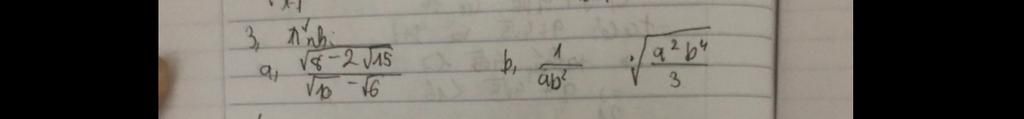 3, tính:
a, \frac{\sqrt{8-2\sqrt{15}}}{\sqrt{10}-\sqrt{6}} b, \frac{1}{ab^2} \sqrt{\frac{a^2b^4}{3}}